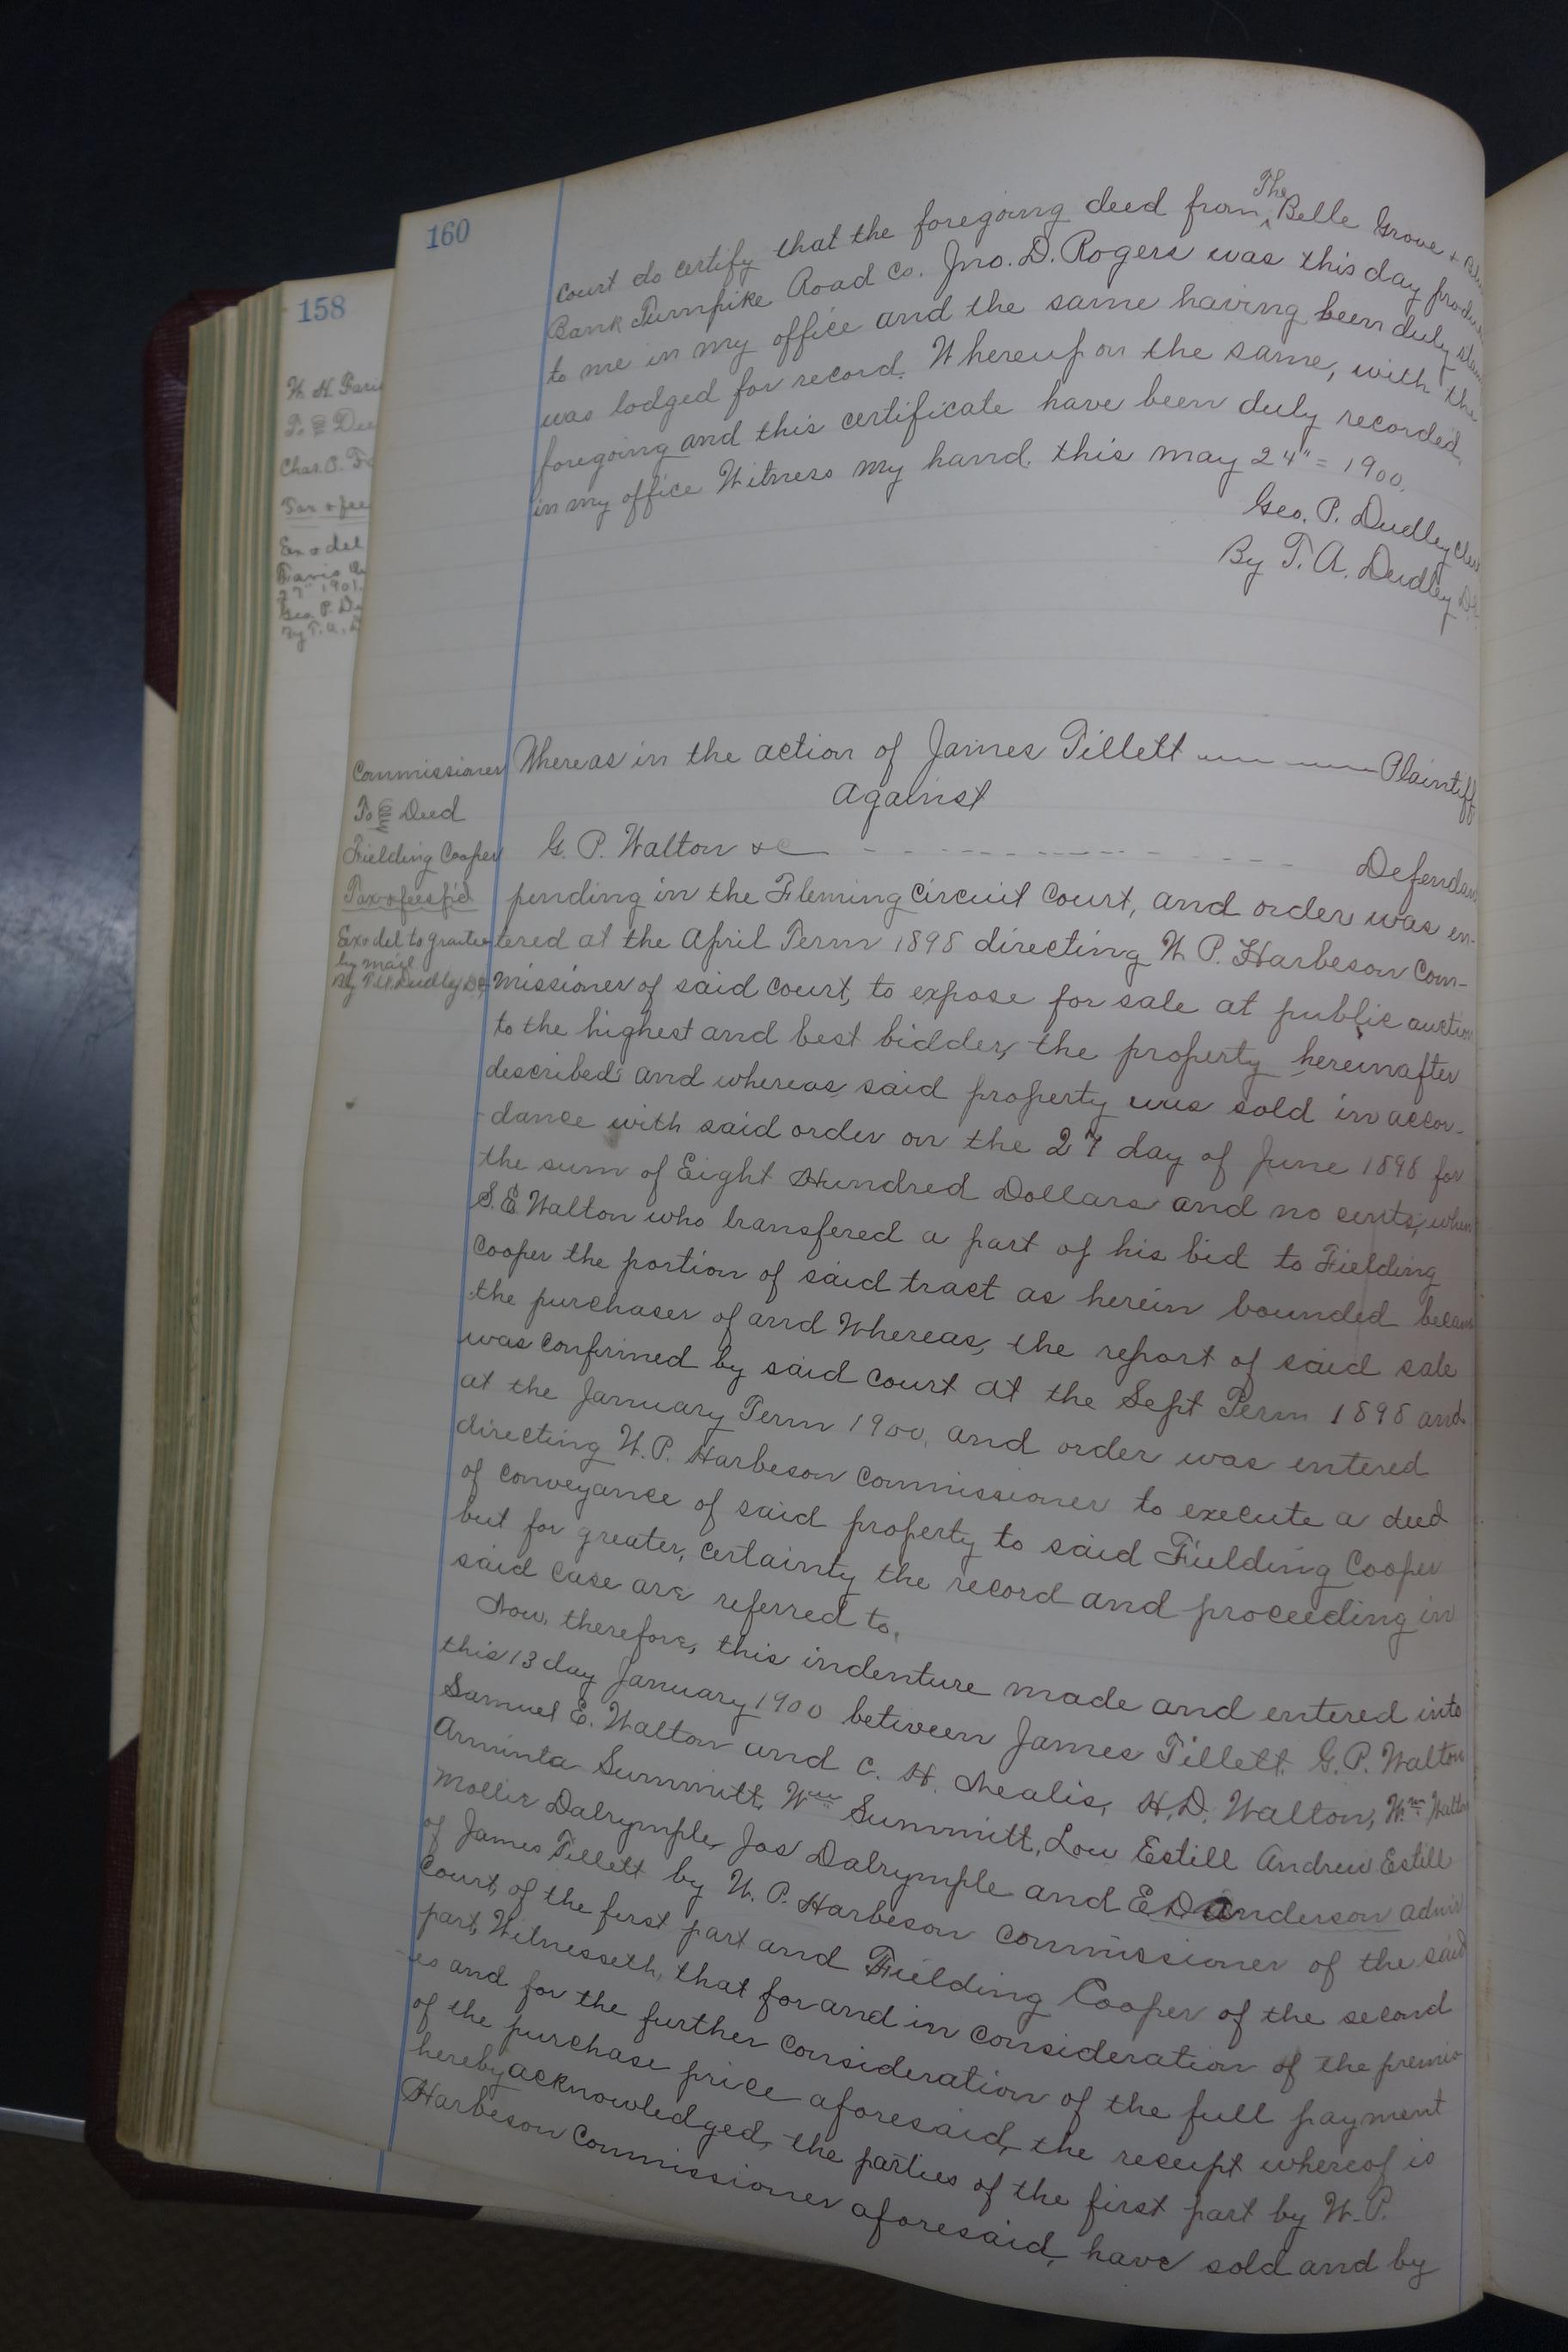 160
Court do certify that the foregoing deed from The Belle Grove +
Bank Turnpike Road Co. Jno. D. Rogers was this day
to me in my office and the same having been duly
was lodged for record. Whereupon the same, with the
foregoing and this certificate have been duly recorded
in my office Witness my hand. this may 24" = 1900.
Geo. P. Dudley
By T. A. Dudley
Commissioner
To Deed
Fielding Cooper
Tax + fees p'd
Ex + del to grantee
by mail
By T.A. Dudley D.C.
Whereas in the action of James Tillett Plaintiff
Against
G. P. Walton &c
pending in the Fleming Circuit Court, and order was en-
tered at the April Term 1898 directing W. P. Harbeson Com-
missioner of said Court, to expose for sale at public auction
to the highest and best bidder, the property hereinafter
described and whereas, said property was sold in accor-
-dance with said order on the 27 day of June 1898 for
the sum of Eight Hundred Dollars and no cents, when
S. E Walton who transfered a part of his bid to Fielding
Cooper the portion of said tract as herein bounded
the purchaser of and Whereas, the report of said sale
was confirmed by said Court at the Sept Term 1898 and
at the January Term 1900, and order was entered
directing W. P. Harbeson Commissioner to execute a deed
of conveyance of said property to said Fielding Cooper
but for greater, certainty the record and proceeding in
said case are referred to.
Now, therefore, this indenture made and entered into
this 13 day January 1900 between James Tillett. G. P. Walton
Samuel E. Walton and C. H. Nealis, H. D. Walton, Wm Walton
Arminta Summitt, Wm Summitt, Lou Estill Andrew Estill
Mollie Dalrymple, Jas Dalrymple and E. D Anderson admr
of James Tillett by W. P. Harbeson Commissioner of the said
Court, of the first part and Fielding Cooper of the second
part, Witnesseth, that for and in consideration of the premis-
-es and for the further consideration of the full payment
of the purchase price aforesaid, the receipt whereof is
hereby acknowledged, the parties of the first part by W. P.
Harbeson Commissioner aforesaid, have sold and by
158
W. H.
To
Chas. B.
Tax + fee
Ex + del
27" 1901.
Geo. P.
By T. A. D